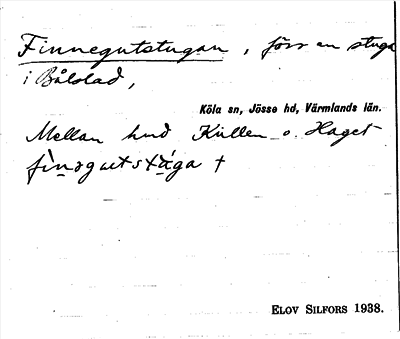 Finnegutstugan, förr en stuga
i Bålstad,
Köla sn, Jösse hd, Värmlands län.
Mellan hmd Kullen o. Haget
†
ELOV SILFORS 1938.